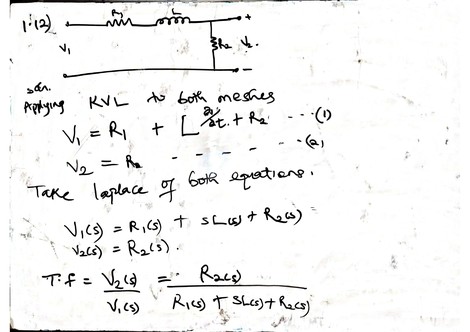 1.(2) R₁ L
+
V₁ R₂ V₂.
−
soln.
Applying KVL to both meshes
V₁ = R₁ + L ∂i/∂t. + R₂ ---(1)
V₂ = R₂ - - - - --(2)
Take laplace of both equations.
V₁(s) = R₁(s) + sL(s) + R₂(s)
V₂(s) = R₂(s).
T.f = V₂(s)/V₁(s) = R₂(s)/R₁(s) + sL(s) + R₂(s)